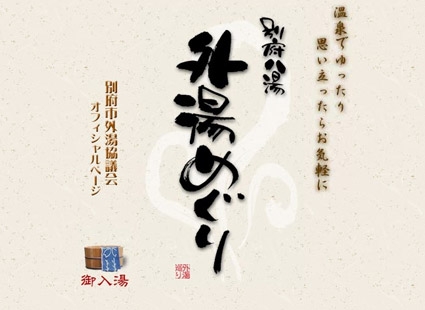 温泉でゆったり
思い立ったらお気軽に
別府八湯
外湯めぐり
別府市外湯協議会
オフィシャルページ
外湯
巡り
御入湯